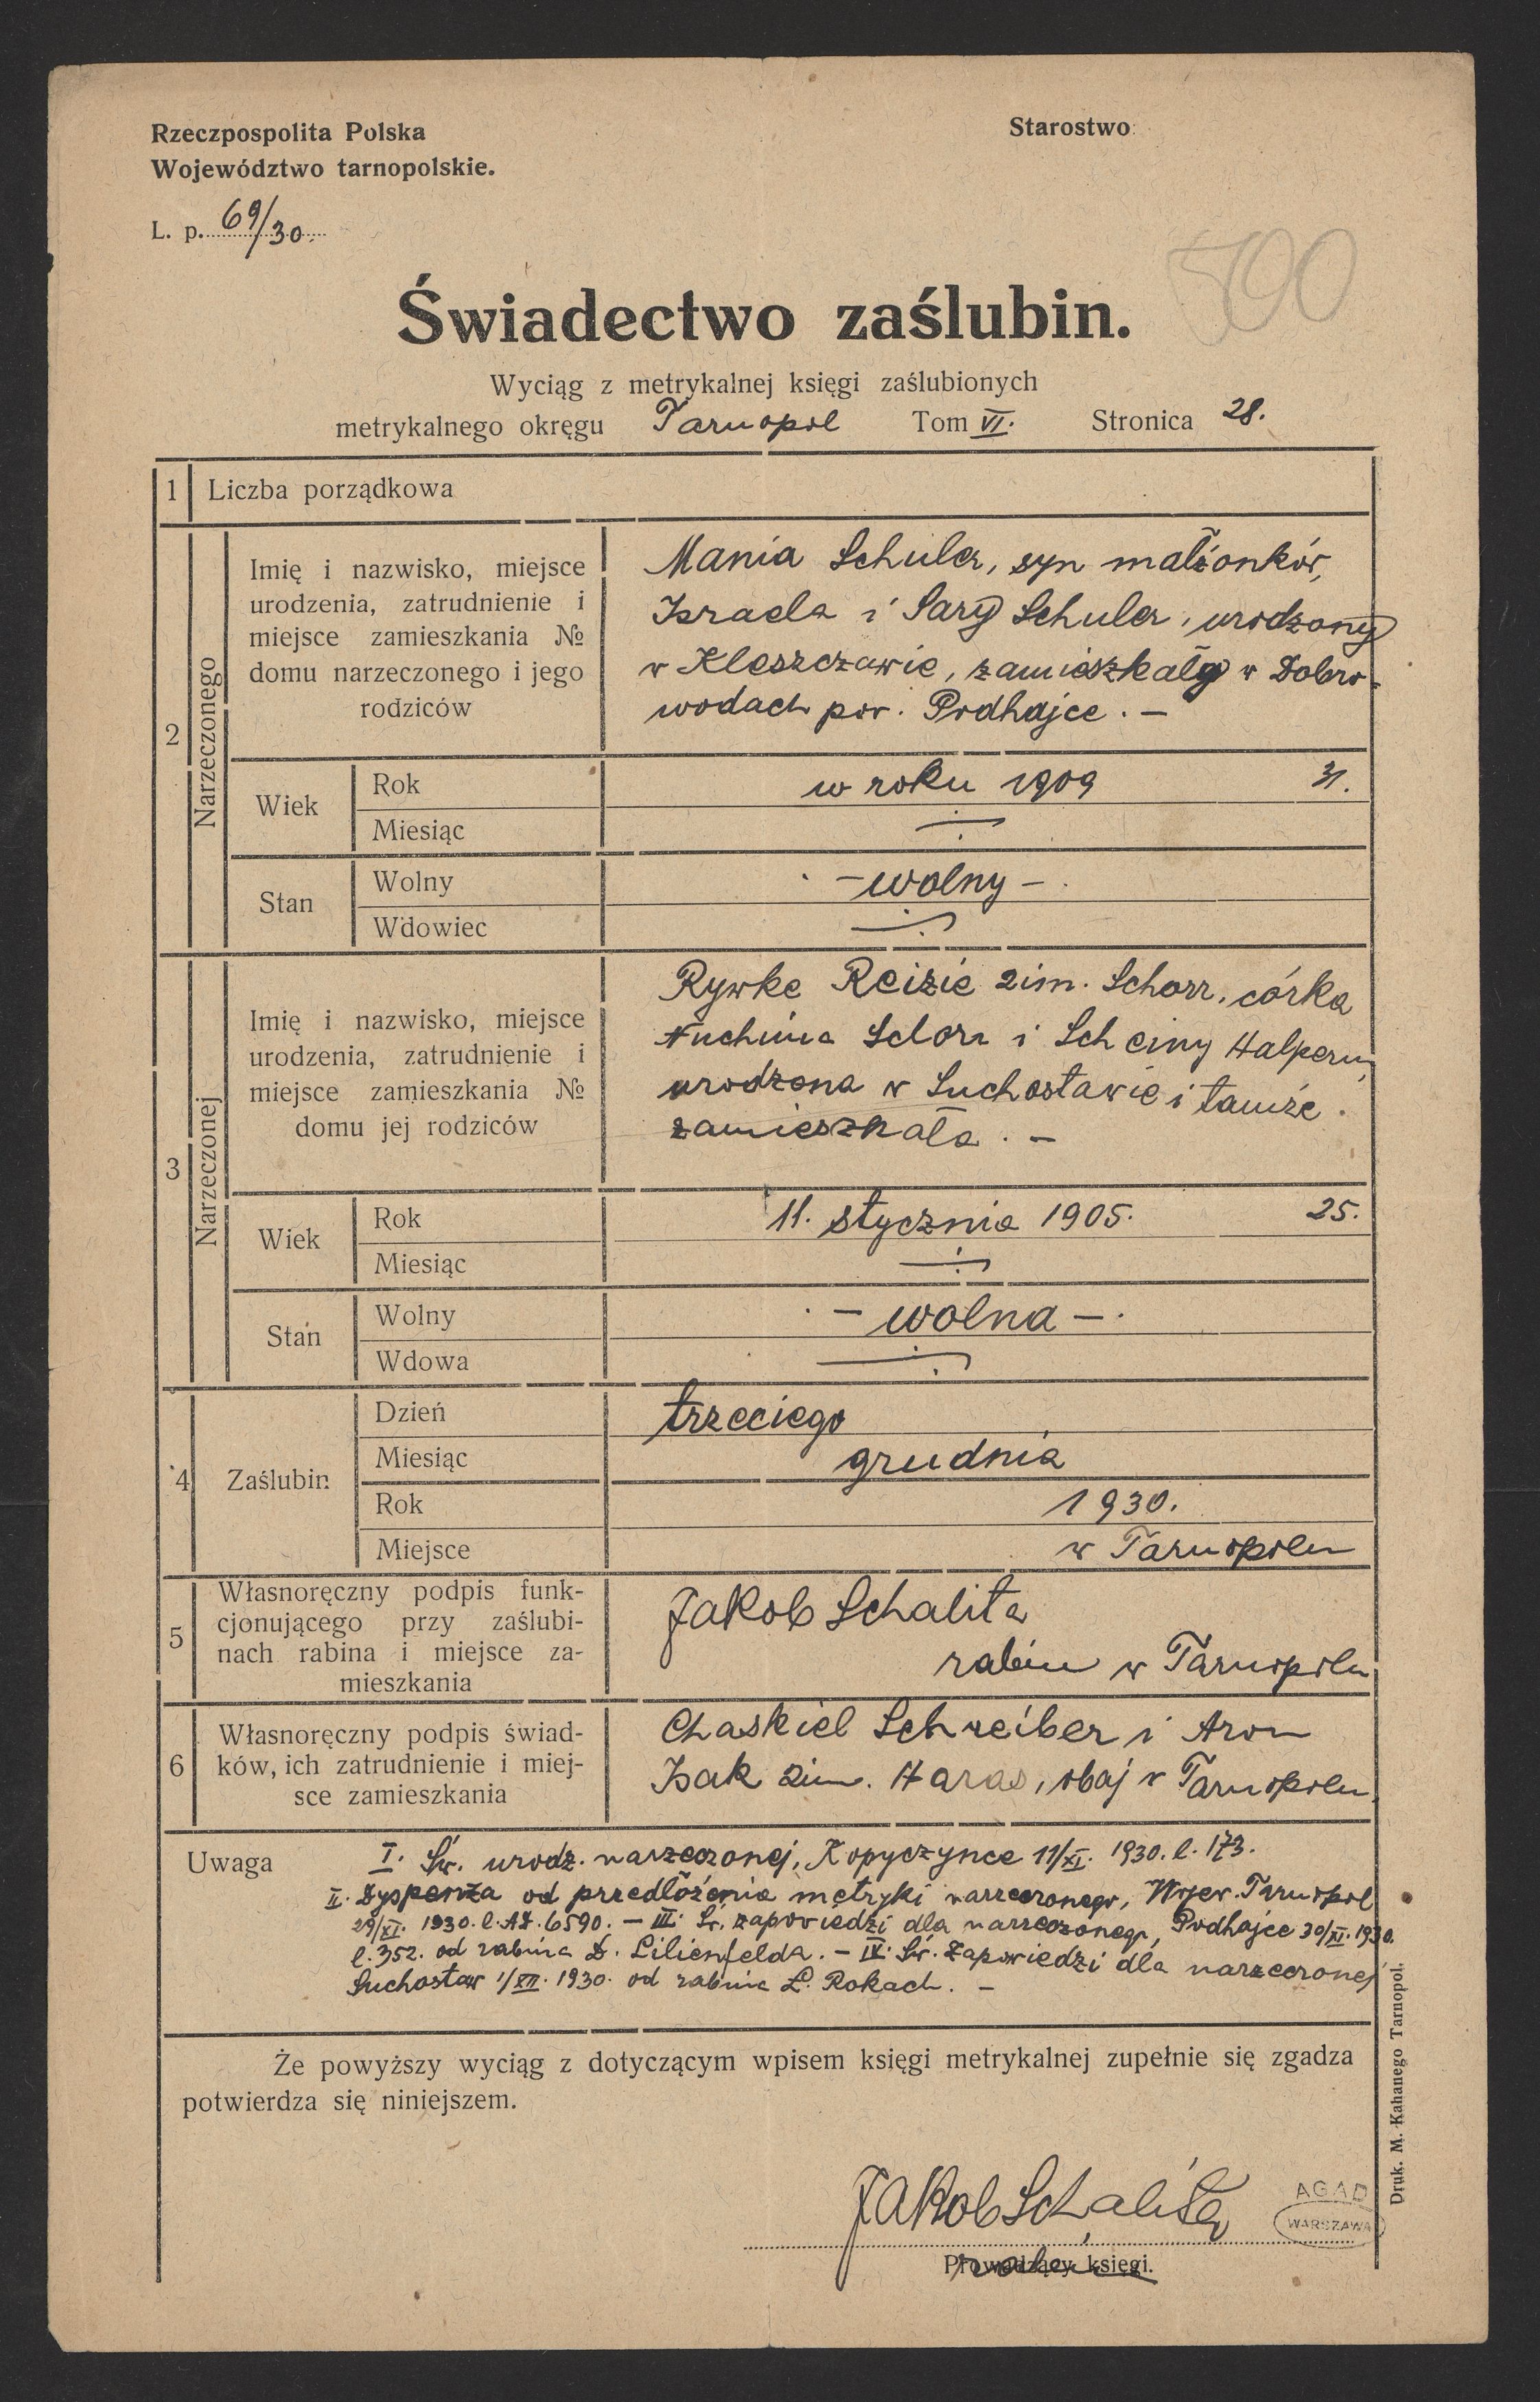 Rzeczpospolita Polska
Województwo tarnopolskie.
Starostwo
L. p. 69/30.
500
Świadectwo zaślubin.
Wyciąg z metrykalnej księgi zaślubionych
metrykalnego okręgu Tarnopol Tom VI. Stronica 28.
1 Liczba porządkowa
2
Narzeczonego
Imię i nazwisko, miejsce
urodzenia, zatrudnienie i
miejsce zamieszkania №
domu narzeczonego i jego
rodziców
Mania Schuler, syn małżonków,
Israela i Sary Schuler, urodzony
w Kleszczawie, zamieszkały w Dobro-
wodach pow. Podhajce. —
Wiek
Rok w roku 1909
Miesiąc
Stan
Wolny — wolny —
Wdowiec
3
Narzeczonej
Imię i nazwisko, miejsce
urodzenia, zatrudnienie i
miejsce zamieszkania №
domu jej rodziców
Rywke Reizie 2im. Schorr, córka
Nuchima Schorr i Scheiny Halpern,
urodzona w Suchostawie i tamże
zamieszkała. —
Wiek
Rok 11. stycznia 1905. 25.
Miesiąc
Stan
Wolny — wolna —
Wdowa
4 Zaślubin
Dzień trzeciego
Miesiąc grudnia
Rok 1930.
Miejsce w Tarnopolu
5
Własnoręczny podpis funk-
cjonującego przy zaślubi-
nach rabina i miejsce za-
mieszkania
Jakob Schalita
rabin w Tarnopolu
6
Własnoręczny podpis świad-
ków, ich zatrudnienie i miej-
sce zamieszkania
Chaskiel Schreiber i Aron
Isak 2im. Haras, obaj w Tarnopolu.
Uwaga
I. Św. urodz. narzeczonej, Kopyczynce 11/XI. 1930. l. 173.
II. Dyspenza od przedłożenia metryki narzeczonego, Wojew. Tarnopol
29/XI. 1930. l. AD. 6590. — III. Św. zapowiedzi dla narzeczonego, Podhajce 30/XI. 1930.
l. 352. od rabina D. Lilienfelda. — IV. Św. Zapowiedzi dla narzeczonej
Suchostaw 1/XII. 1930. od rabina L. Rokach. —
Że powyższy wyciąg z dotyczącym wpisem księgi metrykalnej zupełnie się zgadza
potwierdza się niniejszem.
Jakob Schalita
Prowadzący księgi.
AGAD
WARSZAWA
Druk. M. Kahanego Tarnopol.